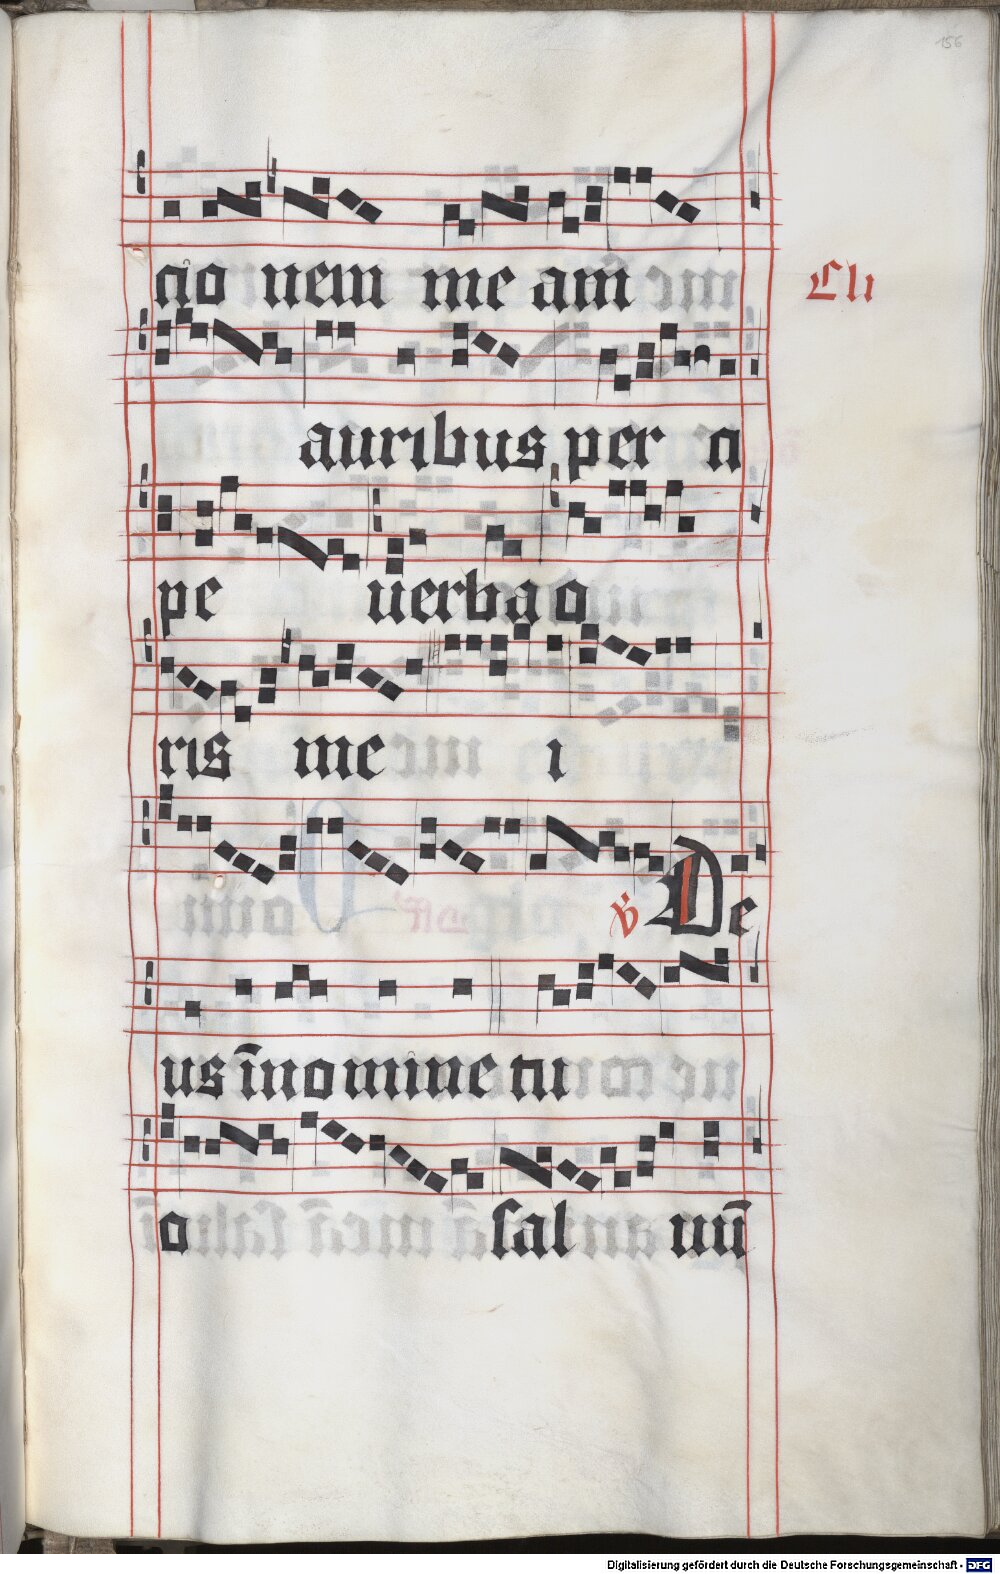 156
cio nem me am
Cli
auribus per ci
pe uerba o
ris me i
℣ De
us īnomine tu
o saluū
Digitalisierung gefördert durch die Deutsche Forschungsgemeinschaft - DFG